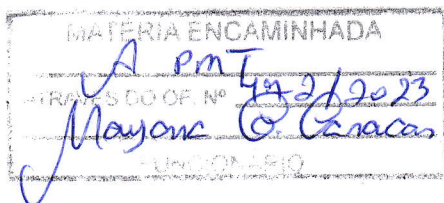 MATÉRIA ENCAMINHADA
A PMT
ATRAVÉS DO OF. Nº 472/2023
Mayara C. Caracas
FUNCIONÁRIO